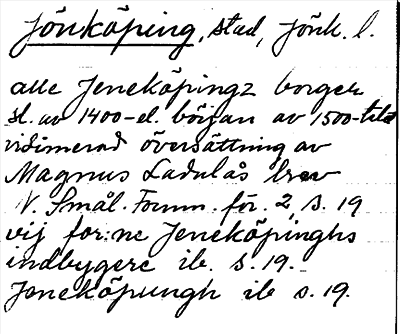 Jönköping, stad, Jönk. l.
alle Jeneköpingz borger
sl. av 1400- el. början av 1500-tal
vidimerad översättning av
Magnus Ladulås brev
N. Smål. Fornm. för. 2, s. 19
vij for:ne Jeneköpinghs
indbyggere ib. s. 19.
Jeneköpungh ib s. 19.